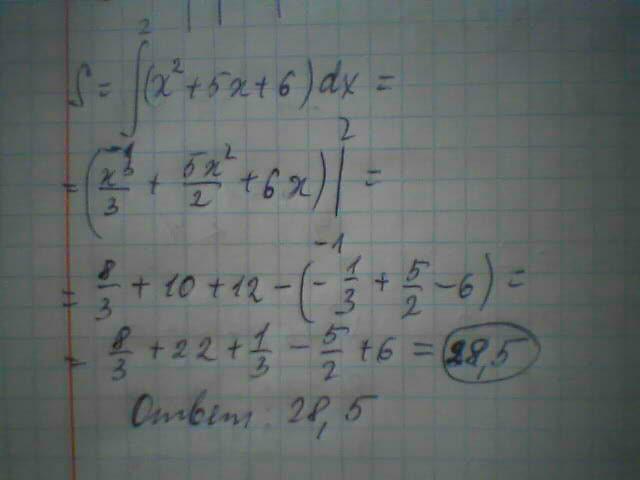 S = ∫₋₁² (x² + 5x + 6) dx =
= (x³/3 + 5x²/2 + 6x) |₋₁² =
= 8/3 + 10 + 12 - (- 1/3 + 5/2 - 6) =
= 8/3 + 22 + 1/3 - 5/2 + 6 = 28,5
Ответ: 28,5